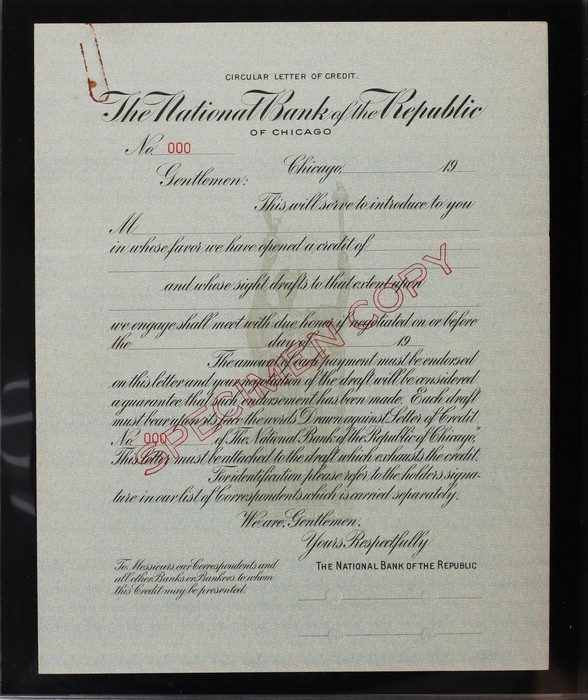 CIRCULAR LETTER OF CREDIT.
The National Bank of the Republic
OF CHICAGO
No. 000
Chicago, 19
Gentlemen:
This will serve to introduce to you
M
in whose favor we have opened a credit of
and whose sight drafts to that extent upon
we engage shall meet with due honor if negotiated on or before
the day of 19
The amount of each payment must be endorsed
on this letter and your negotiation of the draft will be considered
a guarantee that such endorsement has been made. Each draft
must bear upon its face the words "Drawn against Letter of Credit
No. 000 of The National Bank of the Republic of Chicago,"
This Letter must be attached to the draft which exhausts the credit.
For identification please refer to the holders signa-
ture in our list of Correspondents which is carried separately.
We are, Gentlemen,
Yours Respectfully
THE NATIONAL BANK OF THE REPUBLIC
To Messieurs our Correspondents and
all other Banks or Bankers to whom
this Credit may be presented.
SPECIMEN COPY